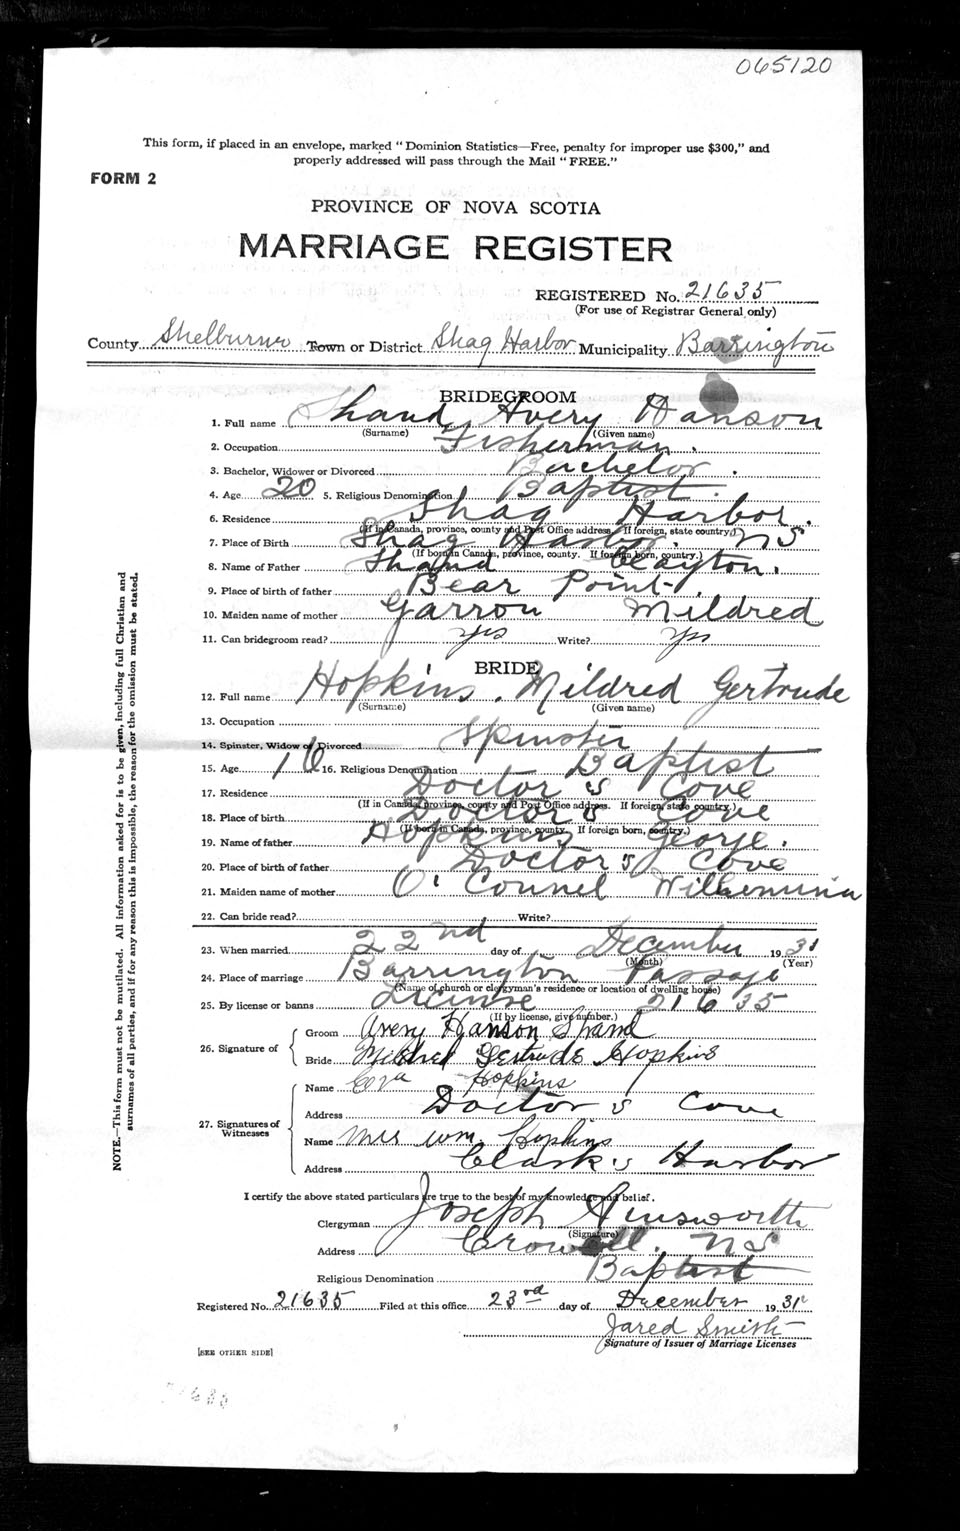 065120
This form, if placed in an envelope, marked "Dominion Statistics—Free, penalty for improper use $300," and
properly addressed will pass through the Mail "FREE."
FORM 2
PROVINCE OF NOVA SCOTIA
MARRIAGE REGISTER
REGISTERED No. 21635
(For use of Registrar General only)
County Shelburne Town or District Shag Harbor Municipality Barrington
BRIDEGROOM
1. Full name Shand Avery Hanson
(Surname) (Given name)
2. Occupation Fisherman.
3. Bachelor, Widower or Divorced Bachelor.
4. Age 20 5. Religious Denomination Baptist.
6. Residence Shag Harbor.
(If in Canada, province, county and Post Office address. If foreign, state country.)
7. Place of Birth Shag Harbor. NS
(If born in Canada, province, county. If foreign born, country.)
8. Name of Father Shand Clayton.
9. Place of birth of father Bear Point.
10. Maiden name of mother Garron Mildred
11. Can bridegroom read? yes Write? yes
BRIDE
12. Full name Hopkins. Mildred Gertrude
(Surname) (Given name)
13. Occupation
14. Spinster, Widow or Divorced Spinster
15. Age 16 16. Religious Denomination Baptist
17. Residence Doctor's Cove
(If in Canada, province, county and Post Office address. If foreign, state country.)
18. Place of birth Doctor's Cove
(If born in Canada, province, county. If foreign born, country.)
19. Name of father Hopkins George.
20. Place of birth of father Doctor's Cove
21. Maiden name of mother O'Connel Wilhemina
22. Can bride read? Write?
23. When married 22nd day of December 1931
(Month) (Year)
24. Place of marriage Barrington Passage
(Name of church or clergyman's residence or location of dwelling house)
25. By license or banns License 21635
(If by license, give number.)
26. Signature of
Groom Avery Hanson Shand
Bride Mildred Gertrude Hopkins
27. Signatures of Witnesses
Name Eva Hopkins
Address Doctor's Cove
Name Mrs Wm. Hopkins
Address Clark's Harbor
I certify the above stated particulars are true to the best of my knowledge and belief.
Clergyman Joseph Ainsworth
(Signature)
Address Crowell. NS
Religious Denomination Baptist
Registered No. 21635 Filed at this office 23rd day of December 1931
Jared Smith
Signature of Issuer of Marriage Licenses
[SEE OTHER SIDE]
NOTE.—This form must not be mutilated. All information asked for is to be given, including full Christian and
surnames of all parties, and if for any reason this is impossible, the reason for the omission must be stated.